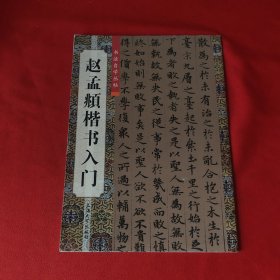 书法自学丛帖
赵孟頫楷书入门
散為之於未有治之於未亂合抱之木生於
毫末九層之臺起於累土千里之行始於足
下為者敗之執者失之是以聖人無為故無敗
無執故無失民之從事常於幾成而敗之慎終
如始則無敗事矣是以聖人欲不欲不貴難
得之貨學不學復衆人之所過以輔萬物之